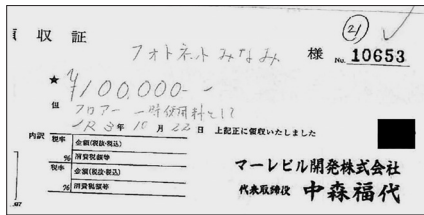 ㉑
領収証 フォトネットみなみ 様 No. 10653
★ ¥100,000-
但 フロアー 一時使用料として
R3年10月22日 上記正に領収いたしました
内訳
税率 金額(税抜・税込)
% 消費税額等
税率 金額(税抜・税込)
% 消費税額等
マーレビル開発株式会社
代表取締役 中森福代